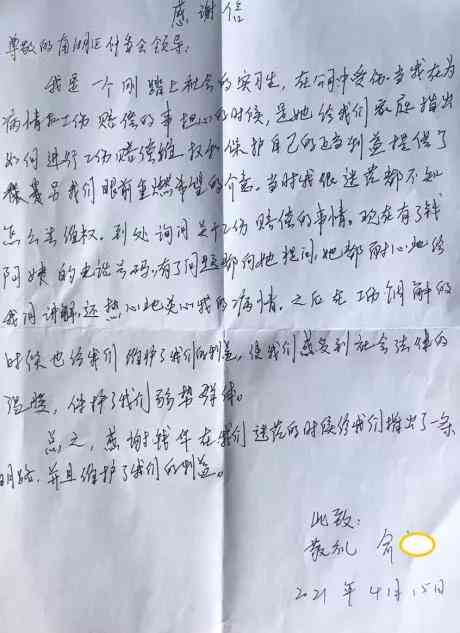 感谢信
尊敬的南湖区仲委会领导:
我是一个刚踏上社会的实习生,在公司中受伤.当我在为
病情和工伤赔偿的事担心的时候,是她给我们家庭指出
如何进行工伤赔偿维权和保护自己的正当利益提供了
另我们眼前重燃希望的介意。当时我很迷茫都不知
怎么去维权。到处询问关于工伤赔偿的事情。现在有了钱
阿姨的电话号码,有了问题都向她提问,她都耐心地给
我们讲解,还热心地关心我的病情。之后在工伤调解的
时候也给我们维护了我们的利益,使我们感受到社会法律的
温暖,保护了我们弱势群体。
总之,感谢钱华在我们迷茫的时候给我们指出了一条
明路,并且维护了我们的利益。
此致:
敬礼 俞
2021年4月15日